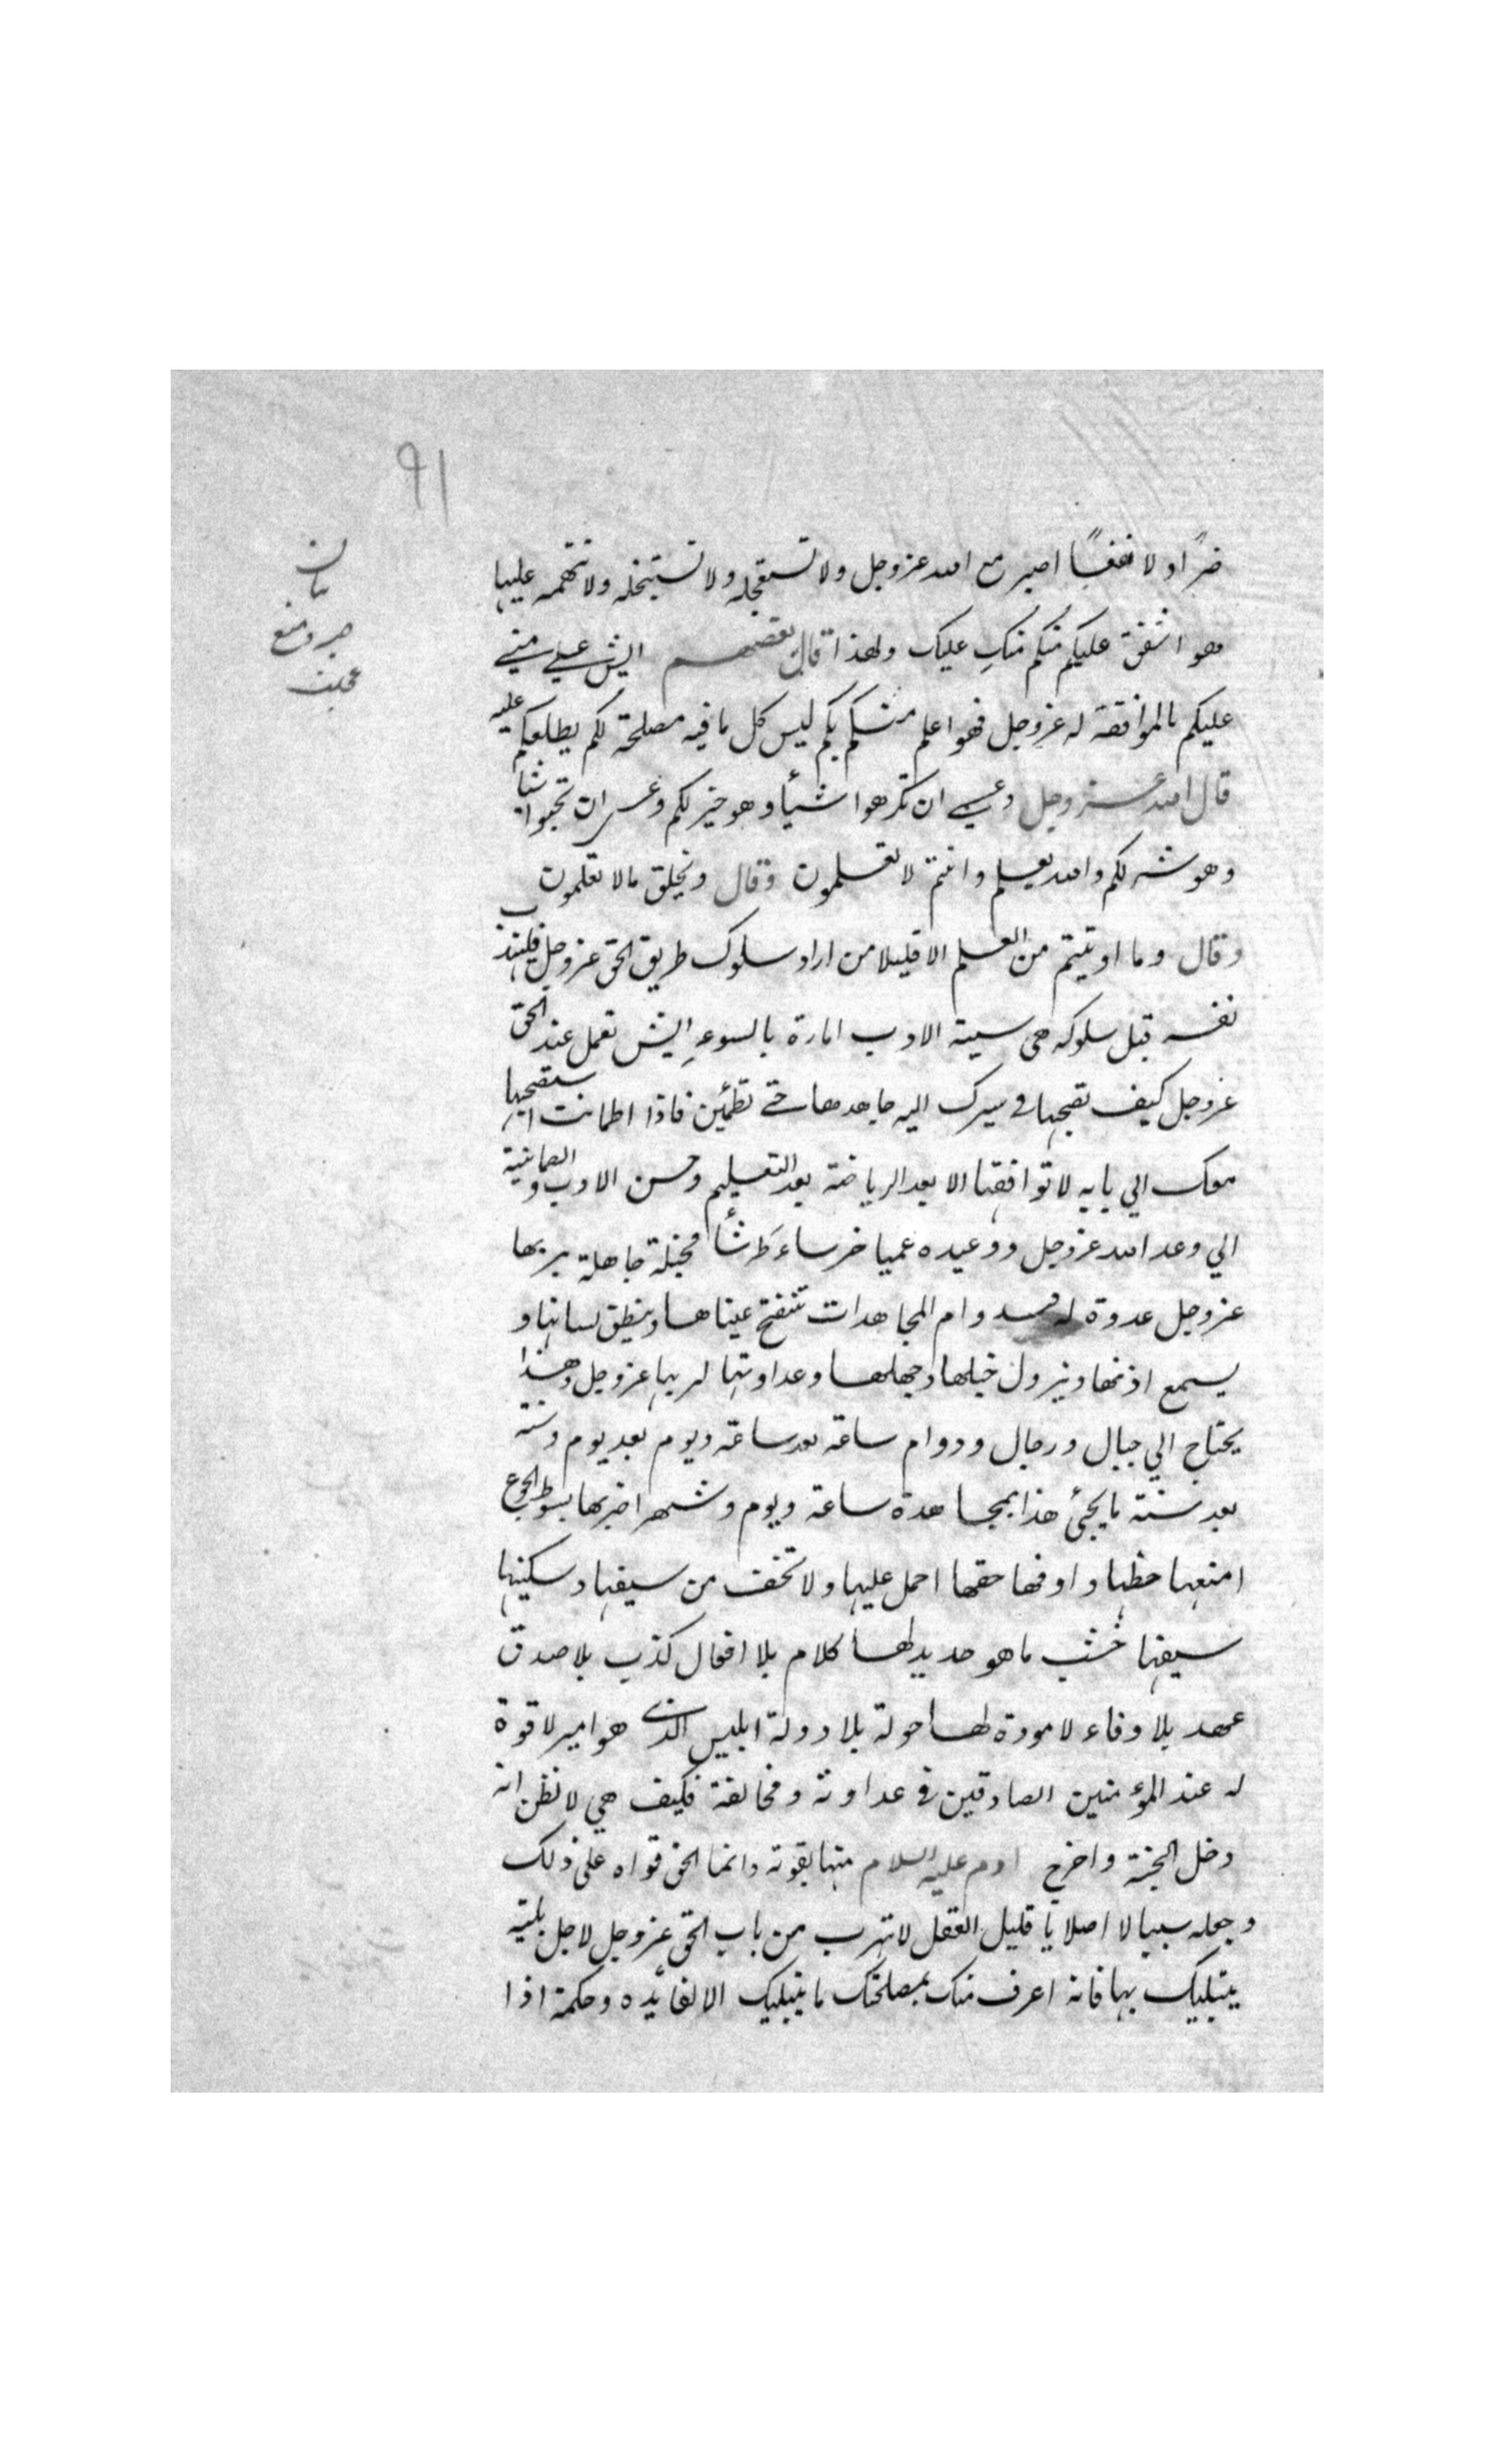 ٩١
بيان
صبر ومنع
عجلت
ضرًا ولا نفعًا اصبر مع الله عز وجل ولا تستعجله ولا تستبخله ولا تتهمه عليها
فهو اشفق عليكم منكم منك عليك ولهذا قال بعضهم ايش علي مني
عليكم بالموافقة له عز وجل فهو اعلم منكم بكم ليس كل ما فيه مصلحة لكم يطلعكم عليه
قال الله عز وجل وعسي ان تكرهوا شيأ وهو خير لكم وعسي ان تحبوا شيأ
وهو شر لكم والله يعلم وانتم لا تعلمون وقال ويخلق ما لا تعلمون
وقال وما اوتيتم من العلم الا قليلا من اراد سلوك طريق الحق عز وجل فليهذب
نفسه قبل سلوكه هي سيئة الادب امارة بالسوء ايش تعمل عند الحق
عز وجل كيف تصحبها في سيرك اليه جاهدها حتي تطمئن فاذا اطمانت استصحبها
معك الي بابه لا توافقها الا بعد الرياضة بعد التعليم وحسن الادب والطمانية
الي وعد الله عز وجل ووعيده عميا خرساء طرشأ مخبلة جاهلة بربها
عز وجل عدوة له فبدوام المجاهدات تنفتح عيناها وينطق لسانها و
يسمع اذنها ويزول خبلها وجهلها وعداوتها لربها عز وجل وهذا
يحتاج الي جبال ورجال ودوام ساعة بعد ساعة ويوم بعد يوم وسنة
بعد سنة ما يجئ هذا بمجاهدة ساعة ويوم وشهر اضربها بسوط الجوع
امنعها حظها واوفها حقها احمل عليها ولا تخف من سيفها وسكينها
سيفها خشب ما هو حديد لها كلام بلا افعال كذب بلا صدق
عهد بلا وفاء لا مودة لها حولة بلا دولة ابليس الذي هو امير لا قوة
له عند المؤمنين الصادقين في عداوته ومخالفة فكيف هي لا تظن انه
دخل الجنة واخرج ادم عليه السلام منها بقوته وانما الحق قواه علي ذلك
وجعله سببا لا اصلا يا قليل العقل لا تهرب من باب الحق عز وجل لاجل بلية
يبتليك بها فانه اعرف منك بمصلحتك ما يبتليك الا لفائده وحكمة اذا